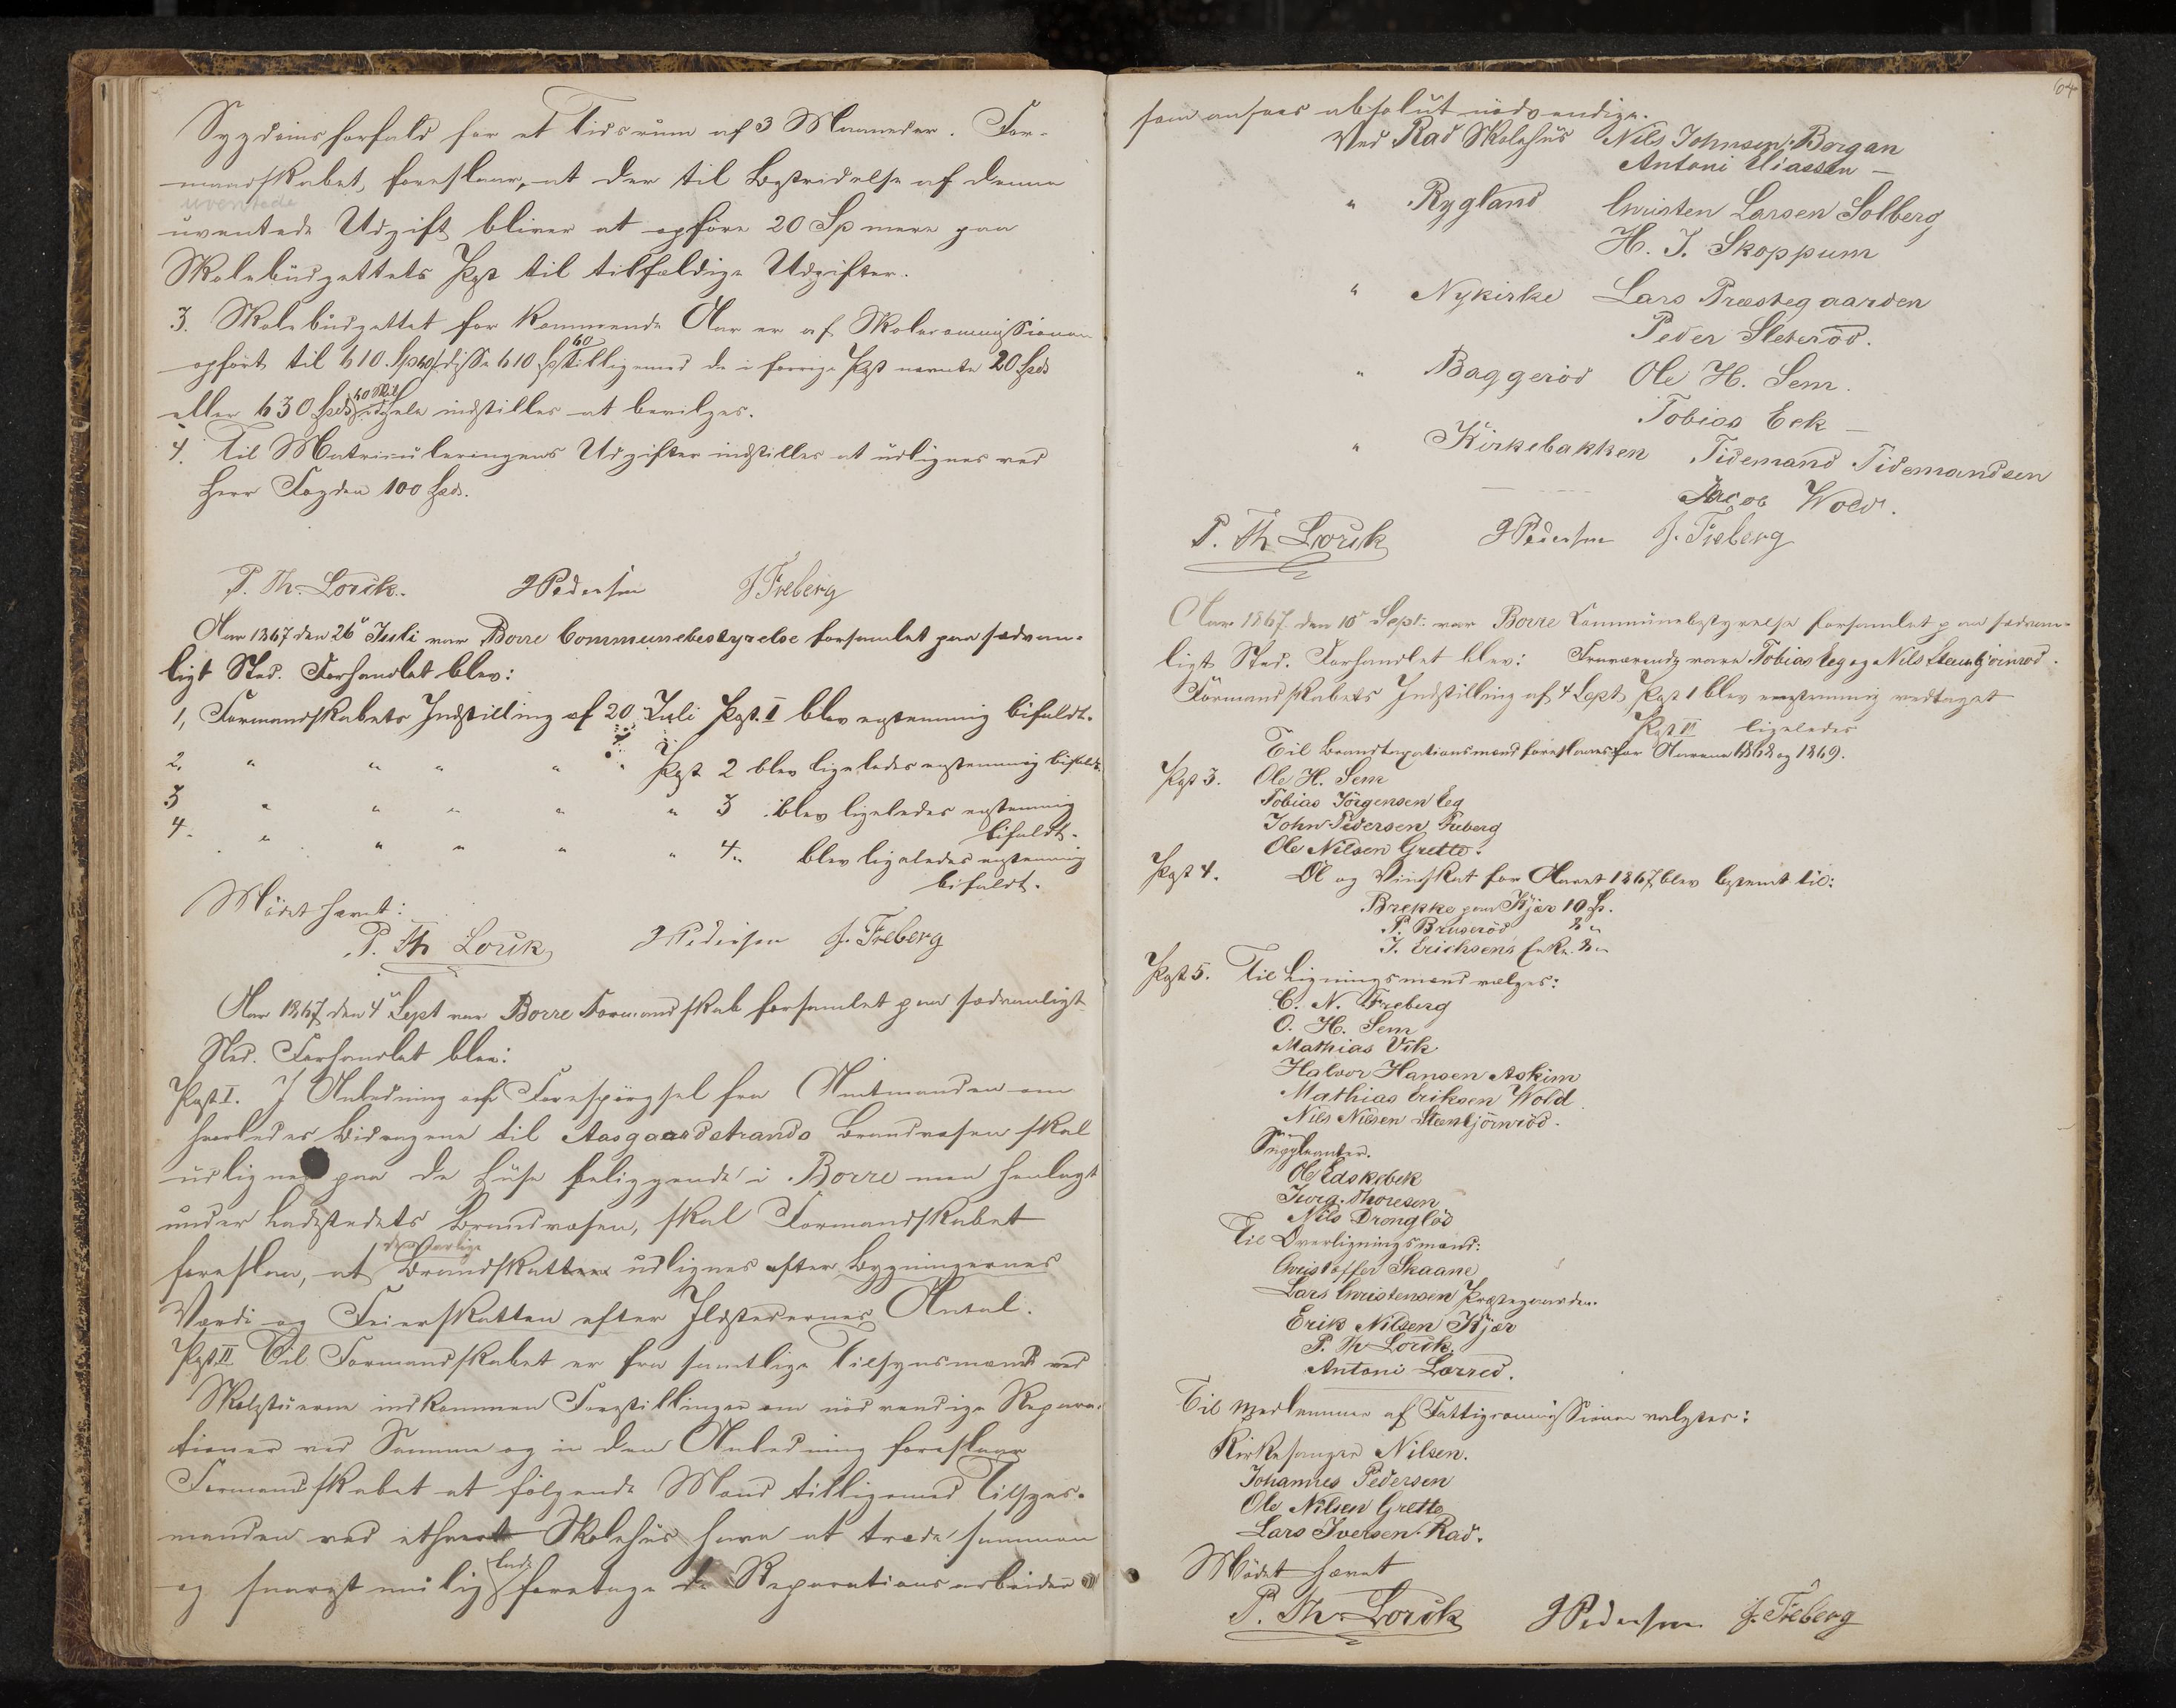 Sygdomsforfald for et Tidsrum af 3 Maaneder. For-
mandskabet foreslaar, at der til Bestridelse af denne
uventede
uventede Udgift bliver at opføre 20 Sp mere paa
Skolebüdgettets Post til tilfældige Udgifter.
3. Skolebüdgettet for kommende Aar er af Skolecommissionen
opført til 610 Sp 60 / disse 610 Sp 60 tilligemed de i forrige Post nævnte 20 Spd
eller 630 Spd 60 Skil indstilles at bevilges.
4. Til Matriculeringens Udgifter indstilles at udlignes ved
Herr Fogden 100 Spd.
P. Th. Lorck. J Pedersen J Freberg
Aar 1867 den 26de Juli var Borre Communebestyrelse forsamlet paa sædvan-
ligt Sted. Forhandlet blev:
1, Formandskabets Indstilling af 20 Juli Post. I blev enstemmig bifaldt.
2. " " " " " Post 2 blev ligeledes enstemmig bifaldt.
3 " " " " " 3 blev ligeledes enstemmig
bifaldt.
4. " " " " " 4. blev ligeledes enstemmig
bifaldt.
Mødet hævet:
P. Th Lorck J Pedersen J. Freberg
Aar 1867 den 4de Sept var Borre Formandskab forsamlet paa sædvanligt
Sted. Forhandlet blev:
Post I. I Anledning af Forespørgsel fra Amtmanden om
hvorledes Bidragene til Aasgaardstrands Brandvæsen skal
udlignes paa de Huse beliggende i Borre men henlagt
under Ladestedets Brandvæsen, skal Formandskabet
foreslaa, at Brandskatten udlignes efter Bygningernes
Værdi og Feierskatten efter Ildstedernes Antal.
Post II Til Formandskabet er fra samtlige Tilsynsmænd ved
Skolestuerne indkommen Forestillinger om nødvendige Repara-
tioner ved Samme og i den Anledning foreslaar
Formandskabet at følgende Mænd tilligemed Tilsyns-
manden ved ethvert Skolehus have at træde sammen
og snarest mulig lade foretage de Reparationsarbeider
64
som ansees absolut nødvendige.
Ved Rad Skolehus Nils Johnsen Borgan
Antoni Eliassen —
" Rygland Christen Larsen Solberg
H. J. Skoppum
" Nykirke Lars Præstegaarden
Peder Sleteröd.
" Baggeröd Ole H. Sem.
Tobias Eek —
" Kirkebakken Tidemand Tidemandsen
Jacob Wold.
P. Th Lorck J Pedersen J. Freberg
Aar 1867 den 10de Sept: var Borre Kommünebestyrelse forsamlet paa sædvan-
ligt Sted. Forhandlet blev: Fraværende vare Tobias Eeg og Nils Steenbjörnröd.
Formandskabets Indstilling af 4 Sept, Post 1 blev enstemmig vedtaget
Post II ligeledes
Til Brandtaxationsmænd foreslaaes for Aarene 1868 og 1869.
Post 3. Ole H. Sem
Tobias Jörgensen Eeg
John Pedersen Freberg
Ole Nilsen Grette.
Post 4. Öl og Vinskat for Aaret 1867 blev bestemt til:
Brekke paa Kjær 10 Sp.
P. Bruseröd 8 "
J. Erichsens Enke. 8 "
Post 5. Til Ligningsmænd valges:
C. N. Freberg
O. H. Sem
Mathias Vik
Halvor Hansen Askim
Mathias Eriksen Wold
Nils Nilsen Steenbjörnröd.
Suppleanter.
Ole Edskebek
Jörg. Thoresen
Nils Drongløs
Til Overligningsmænd:
Christoffer Skaane
Lars Christensen Præstegaarden.
Erik Nilsen Kjær
P. Th Lorck.
Antoni Lorred.
Til Medlemmer af Fattigcommissionen valgtes:
Kirkesanger Nilsen.
Johannes Pedersen
Ole Nilsen Grette
Lars Iversen Rad.
Mødet hævet
P. Th. Lorck J Pedersen J. Freberg